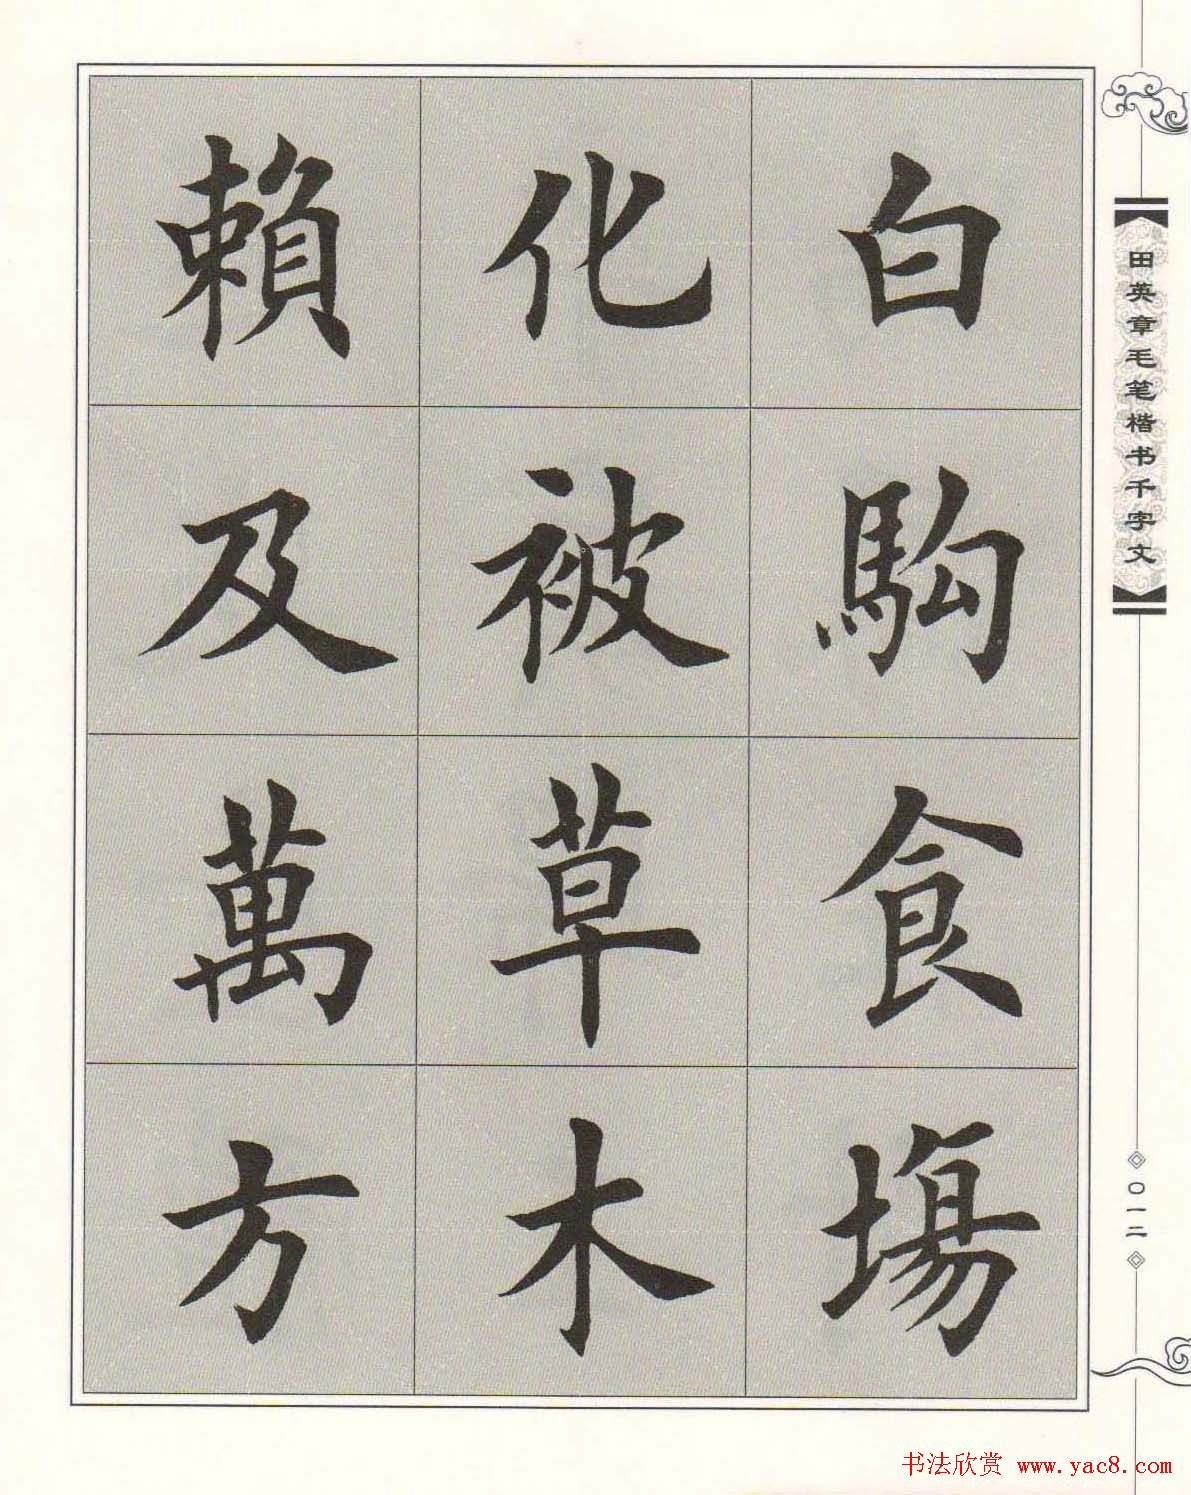 白駒食場
化被草木
賴及萬方
田英章毛笔楷书千字文
〇一二
书法欣赏 www.yac8.com